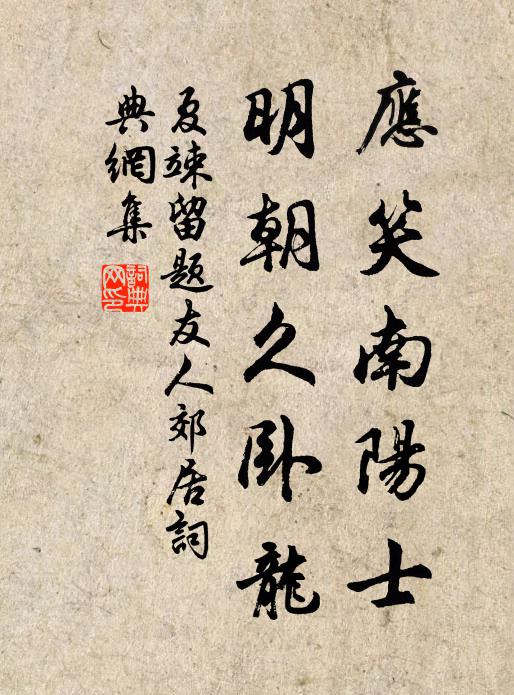 應笑南陽士
明朝久卧龍
夏竦留題友人郊居詞
典網集
詞典
网印